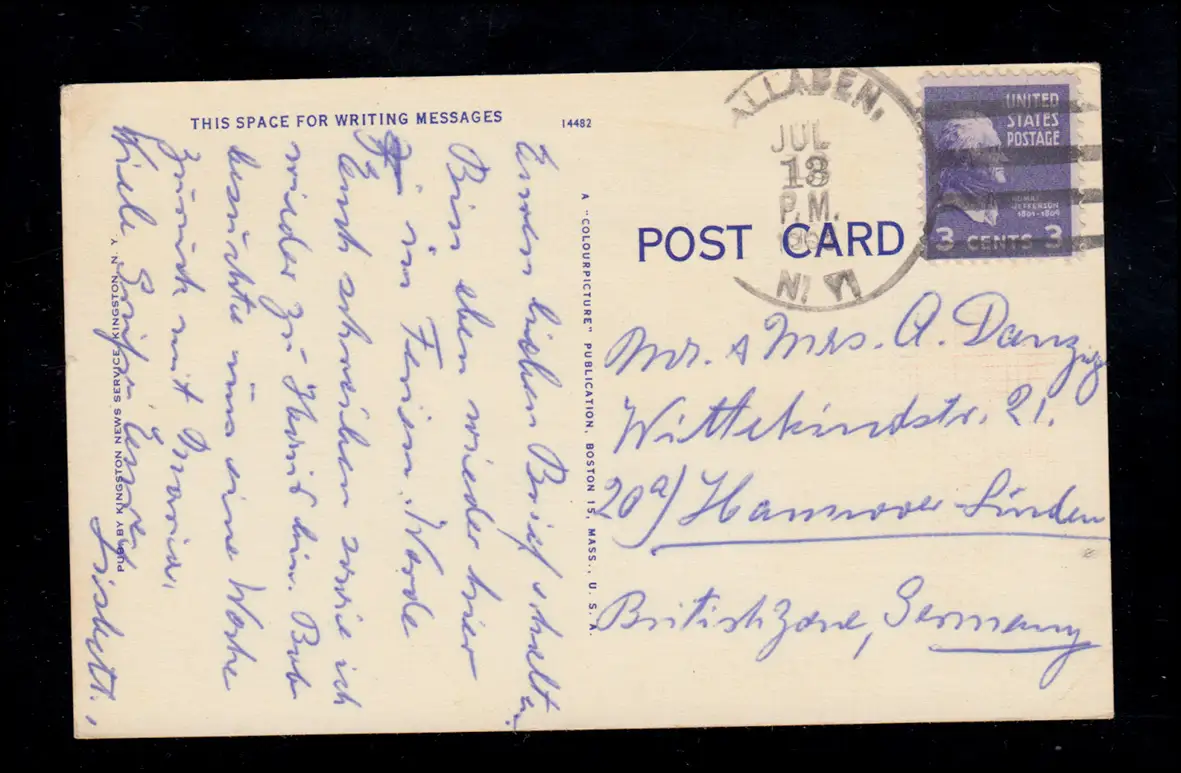 THIS SPACE FOR WRITING MESSAGES
14482
Euren lieben Brief erhalten.
Bin eben wieder hier
in Ferien. Werde
Euch schreiben sowie ich
wieder zu Hause bin. Bob
besuchte uns eine Woche
zurück mit Maria.
Viele Grüße Eure
Lisbett.
PUB. BY KINGSTON NEWS SERVICE, KINGSTON, N. Y.
A "COLOURPICTURE" PUBLICATION, BOSTON 15, MASS., U. S. A.
POST CARD
ALLABEN,
JUL
13
P.M.
N. Y.
UNITED
STATES
POSTAGE
JEFFERSON
1801-1809
3 CENTS 3
Mr. & Mrs. A. Danzig
Wittekindstr. 21.
20a) Hannover-Linden
British Zone, Germany